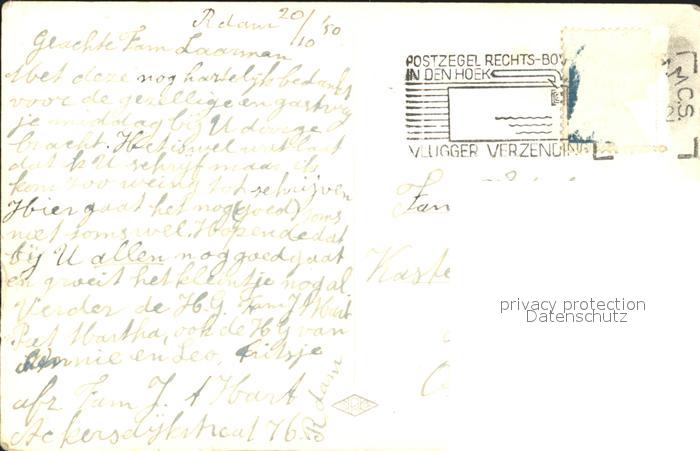 Rdam 20/10 '50
Geachte Fam Laarman
Met deze nog hartelijk bedankt
voor de gezellige en gastvrij
je middag bij U doorge
bracht. Het is wel wat laat
dat ik U schrijf maar ik
kom zoo weinig tot schrijven
Hier gaat het nog (goed) soms
niet soms wel. Hopende dat
bij U allen nog goed gaat
en groeit het kleintje nog al
Verder de H.G. Fam J. t Hart
Piet Martha, ook de H.G. van
Annie en Leo, Fritsje
afz Fam J. t Hart
Ackersdijkstraat 76.
Rdam
POSTZEGEL RECHTS-BOV
IN DEN HOEK
VLUGGER VERZENDIN
M.C.S
Fam
Kaste
privacy protection
Datenschutz